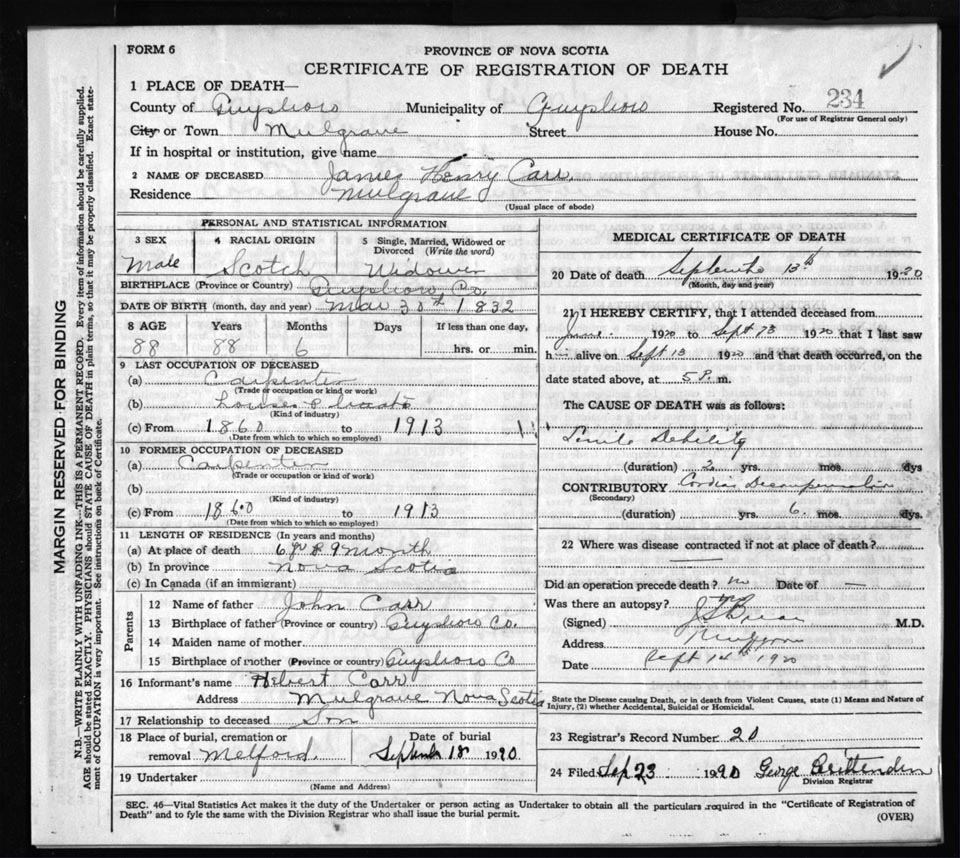 FORM 6
PROVINCE OF NOVA SCOTIA
CERTIFICATE OF REGISTRATION OF DEATH
1 PLACE OF DEATH—
County of Guysboro Municipality of Guysboro Registered No. 234
(For use of Registrar General only)
City or Town Mulgrave Street House No.
If in hospital or institution, give name
2 NAME OF DECEASED James Henry Carr.
Residence Mulgrave
(Usual place of abode)
PERSONAL AND STATISTICAL INFORMATION
3 SEX 4 RACIAL ORIGIN 5 Single, Married, Widowed or Divorced (Write the word)
Male Scotch Widower
BIRTHPLACE (Province or Country) Guysboro Co.
DATE OF BIRTH (month, day and year) Mar 30th 1832
8 AGE Years Months Days If less than one day,
88 88 6 hrs. or min.
9 LAST OCCUPATION OF DECEASED
(a) Carpenter
(Trade or occupation or kind of work)
(b) houses & boats
(Kind of industry)
(c) From 1860 to 1913
(Date from which to which so employed)
10 FORMER OCCUPATION OF DECEASED
(a) Carpenter
(Trade or occupation or kind of work)
(b)
(Kind of industry)
(c) From 1860 to 1913
(Date from which to which so employed)
11 LENGTH OF RESIDENCE (In years and months)
(a) At place of death 6 yr & 9 month
(b) In province Nova Scotia
(c) In Canada (if an immigrant)
Parents
12 Name of father John Carr
13 Birthplace of father (Province or country) Guysboro Co.
14 Maiden name of mother
15 Birthplace of mother (Province or country) Guysboro Co
16 Informant's name Herbert Carr
Address Mulgrave Nova Scotia
17 Relationship to deceased Son
18 Place of burial, cremation or removal Melford. Date of burial September 18 1920
19 Undertaker
(Name and Address)
MEDICAL CERTIFICATE OF DEATH
20 Date of death September 13th 1920
(Month, day and year)
21 I HEREBY CERTIFY, that I attended deceased from
June 1920 to Sept 13 1920 that I last saw
h alive on Sept 13 1920 and that death occurred, on the
date stated above, at 5 P. m.
The CAUSE OF DEATH was as follows:
Senile Debility
(duration) 2 yrs. mos. dys
CONTRIBUTORY Cardiac Decompensation
(Secondary)
(duration) yrs. 6 mos. dys.
22 Where was disease contracted if not at place of death?
Did an operation precede death? no Date of —
Was there an autopsy? no
(Signed) M.D.
Address Mulgrave
Date Sept 14th 1920
State the Disease causing Death, or in death from Violent Causes, state (1) Means and Nature of
Injury, (2) whether Accidental, Suicidal or Homicidal.
23 Registrar's Record Number 20
24 Filed Sep 23 1920 George
Division Registrar
SEC. 46—Vital Statistics Act makes it the duty of the Undertaker or person acting as Undertaker to obtain all the particulars required in the "Certificate of Registration of
Death" and to fyle the same with the Division Registrar who shall issue the burial permit.
(OVER)
MARGIN RESERVED FOR BINDING
N.B.—WRITE PLAINLY WITH UNFADING INK—THIS IS A PERMANENT RECORD. Every item of information should be carefully supplied.
AGE should be stated EXACTLY. PHYSICIANS should STATE CAUSE OF DEATH in plain terms, so that it may be properly classified. Exact state-
ment of OCCUPATION is very important. See instructions on back of Certificate.